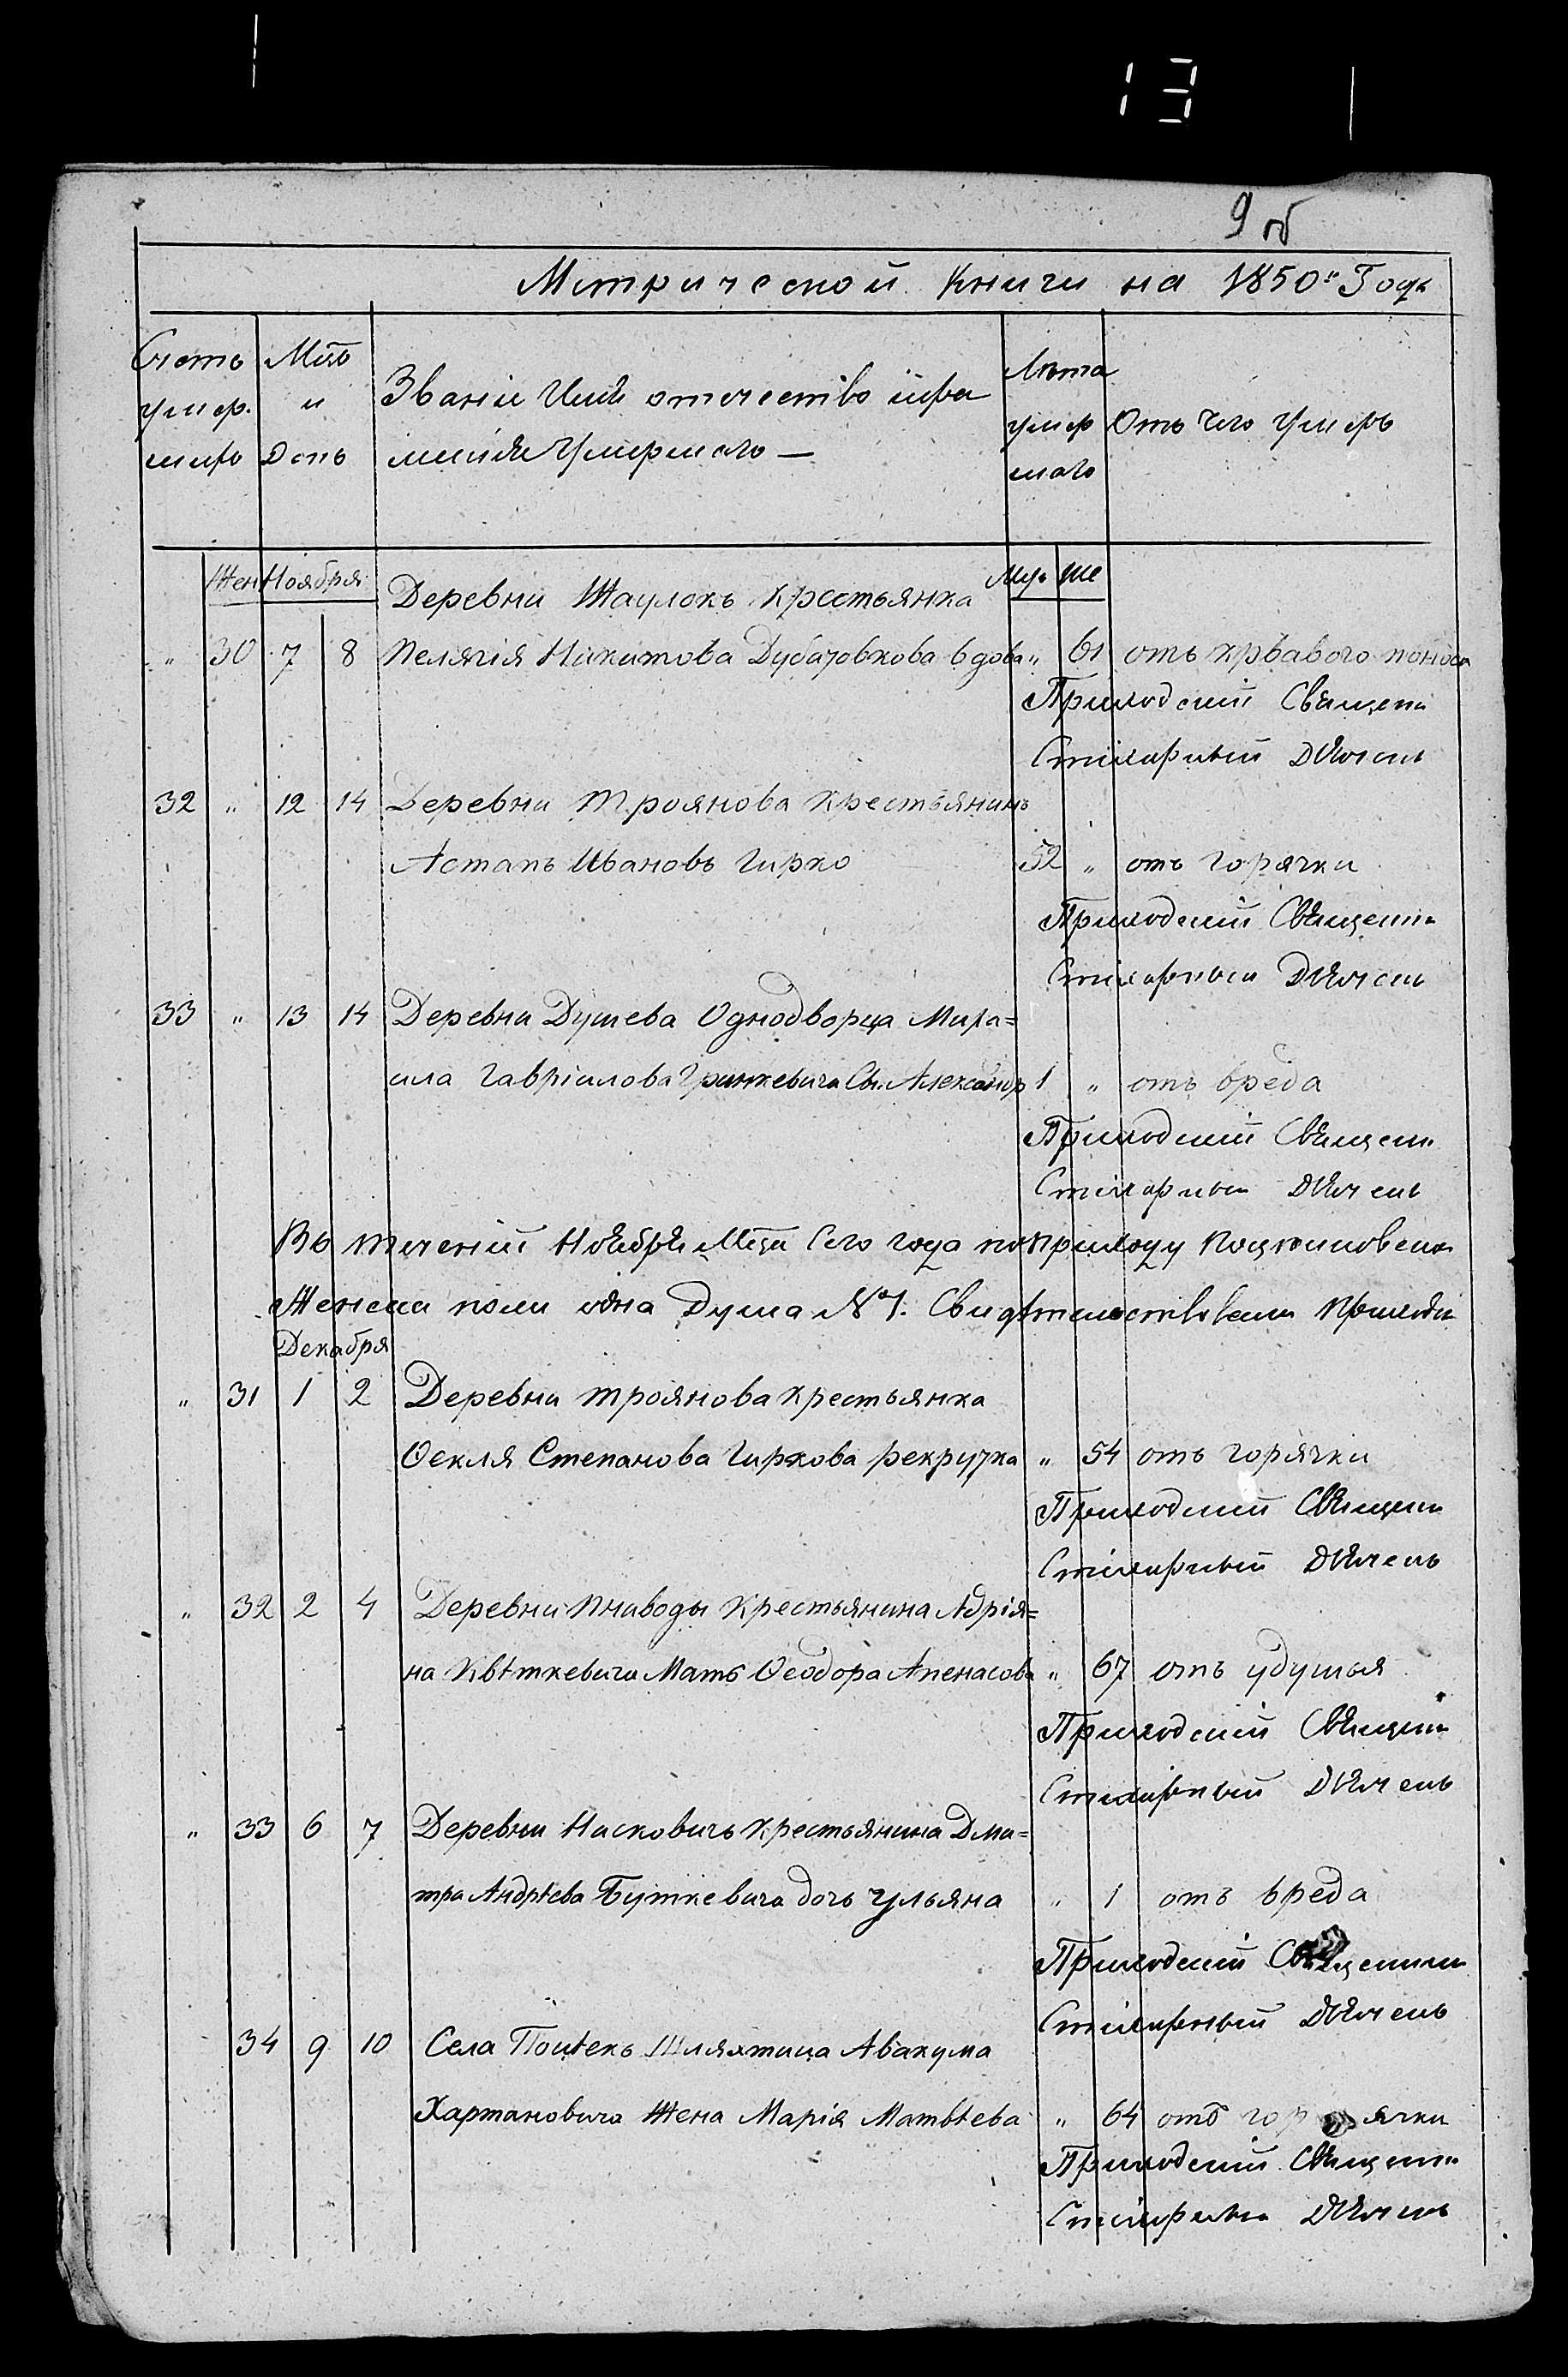 13
9 об
Метрической Книги на 1850й Годъ
Счетъ умер. шихъ
Мцъ и День
Званіе Имя отчество и фа
милія Умершаго —
Лѣта умер шаго
Отъ чего Умеръ
Жен Ноября Муж Же
Деревни Жаулокъ Крестьянка
" 30 7 8 Пелагія Никитова вдова " 61 отъ крвавого поноса
Приходскій Священ
Дьячекъ
32 " 12 14 Деревни Троянова Крестьянинъ
Астапъ Ивановъ Гирко 52 " отъ горячки
Приходскій Священ
Дьячекъ
33 " 13 14 Деревни Душева Однодворца Миха=
ила Гавріилова Гринкевича Сы. Александр 1 " отъ вреда
Приходскій Священ
Дьячекъ
Въ теченій Ноября Мца Сего года по приходу
Женска пола одна Душа №1. Свидѣтельствовали
Декабря
" 31 1 2 Деревни Троянова Крестьянка
Ѳекля Степанова Гиркова рекрутка " 54 отъ горячки
Приходскій Священ
Дьячекъ
" 32 2 4 Деревни Пнаводы Крестьянина Адрія=
на Квѣткевича Мать Ѳеодора Апенасова " 67 отъ удушья
Приходскій Священ
Дьячекъ
" 33 6 7 Деревни Насковичъ Крестьянина Дми=
тра Андрѣева Буткевича дочь Ульяна " 1 отъ вреда
Приходскій Священник
Дьячекъ
34 9 10 Села Шляхтица Авакума
Хартановича Жена Марія Матвѣева " 64 отъ горячки
Приходскій Священ
Дьячекъ